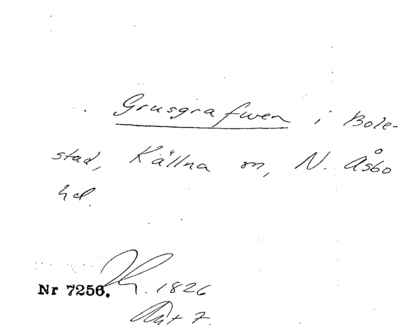 Grusgrafwen i Bole-
stad, Källna sn, N. Åsbo
hd.
Nr 7256. 1826
Akt 7.